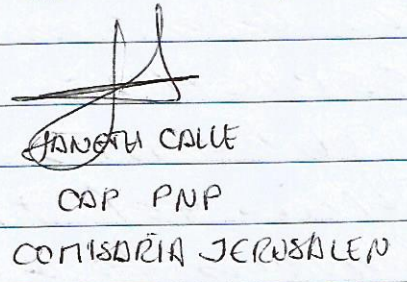 JANETH CALLE
CAP PNP
COMISARÍA JERUSALEN